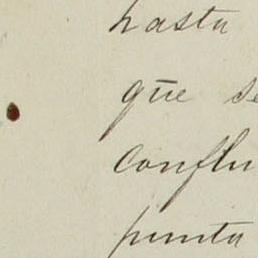 hasta
que se
conflu
punta